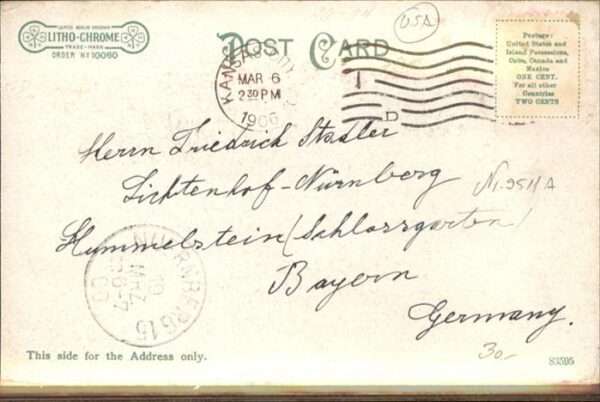 LEIPZIG BERLIN DRESDEN
LITHO-CHROME
TRADE-MARK
ORDER No 10060
POST CARD
USA
KANSAS CITY
MAR 6
2 30 PM
1906
D
Postage:
United States and
Island Possessions,
Cuba, Canada and
Mexico
ONE CENT.
For all other
Countries
TWO CENTS
Herrn Friedrich Stadler
Lichtenhof-Nürnberg
Hummelstein (Schlossgarten)
Bayern
Germany.
NUERNBERG 15
MRZ
06
30.-
This side for the Address only.
S3595